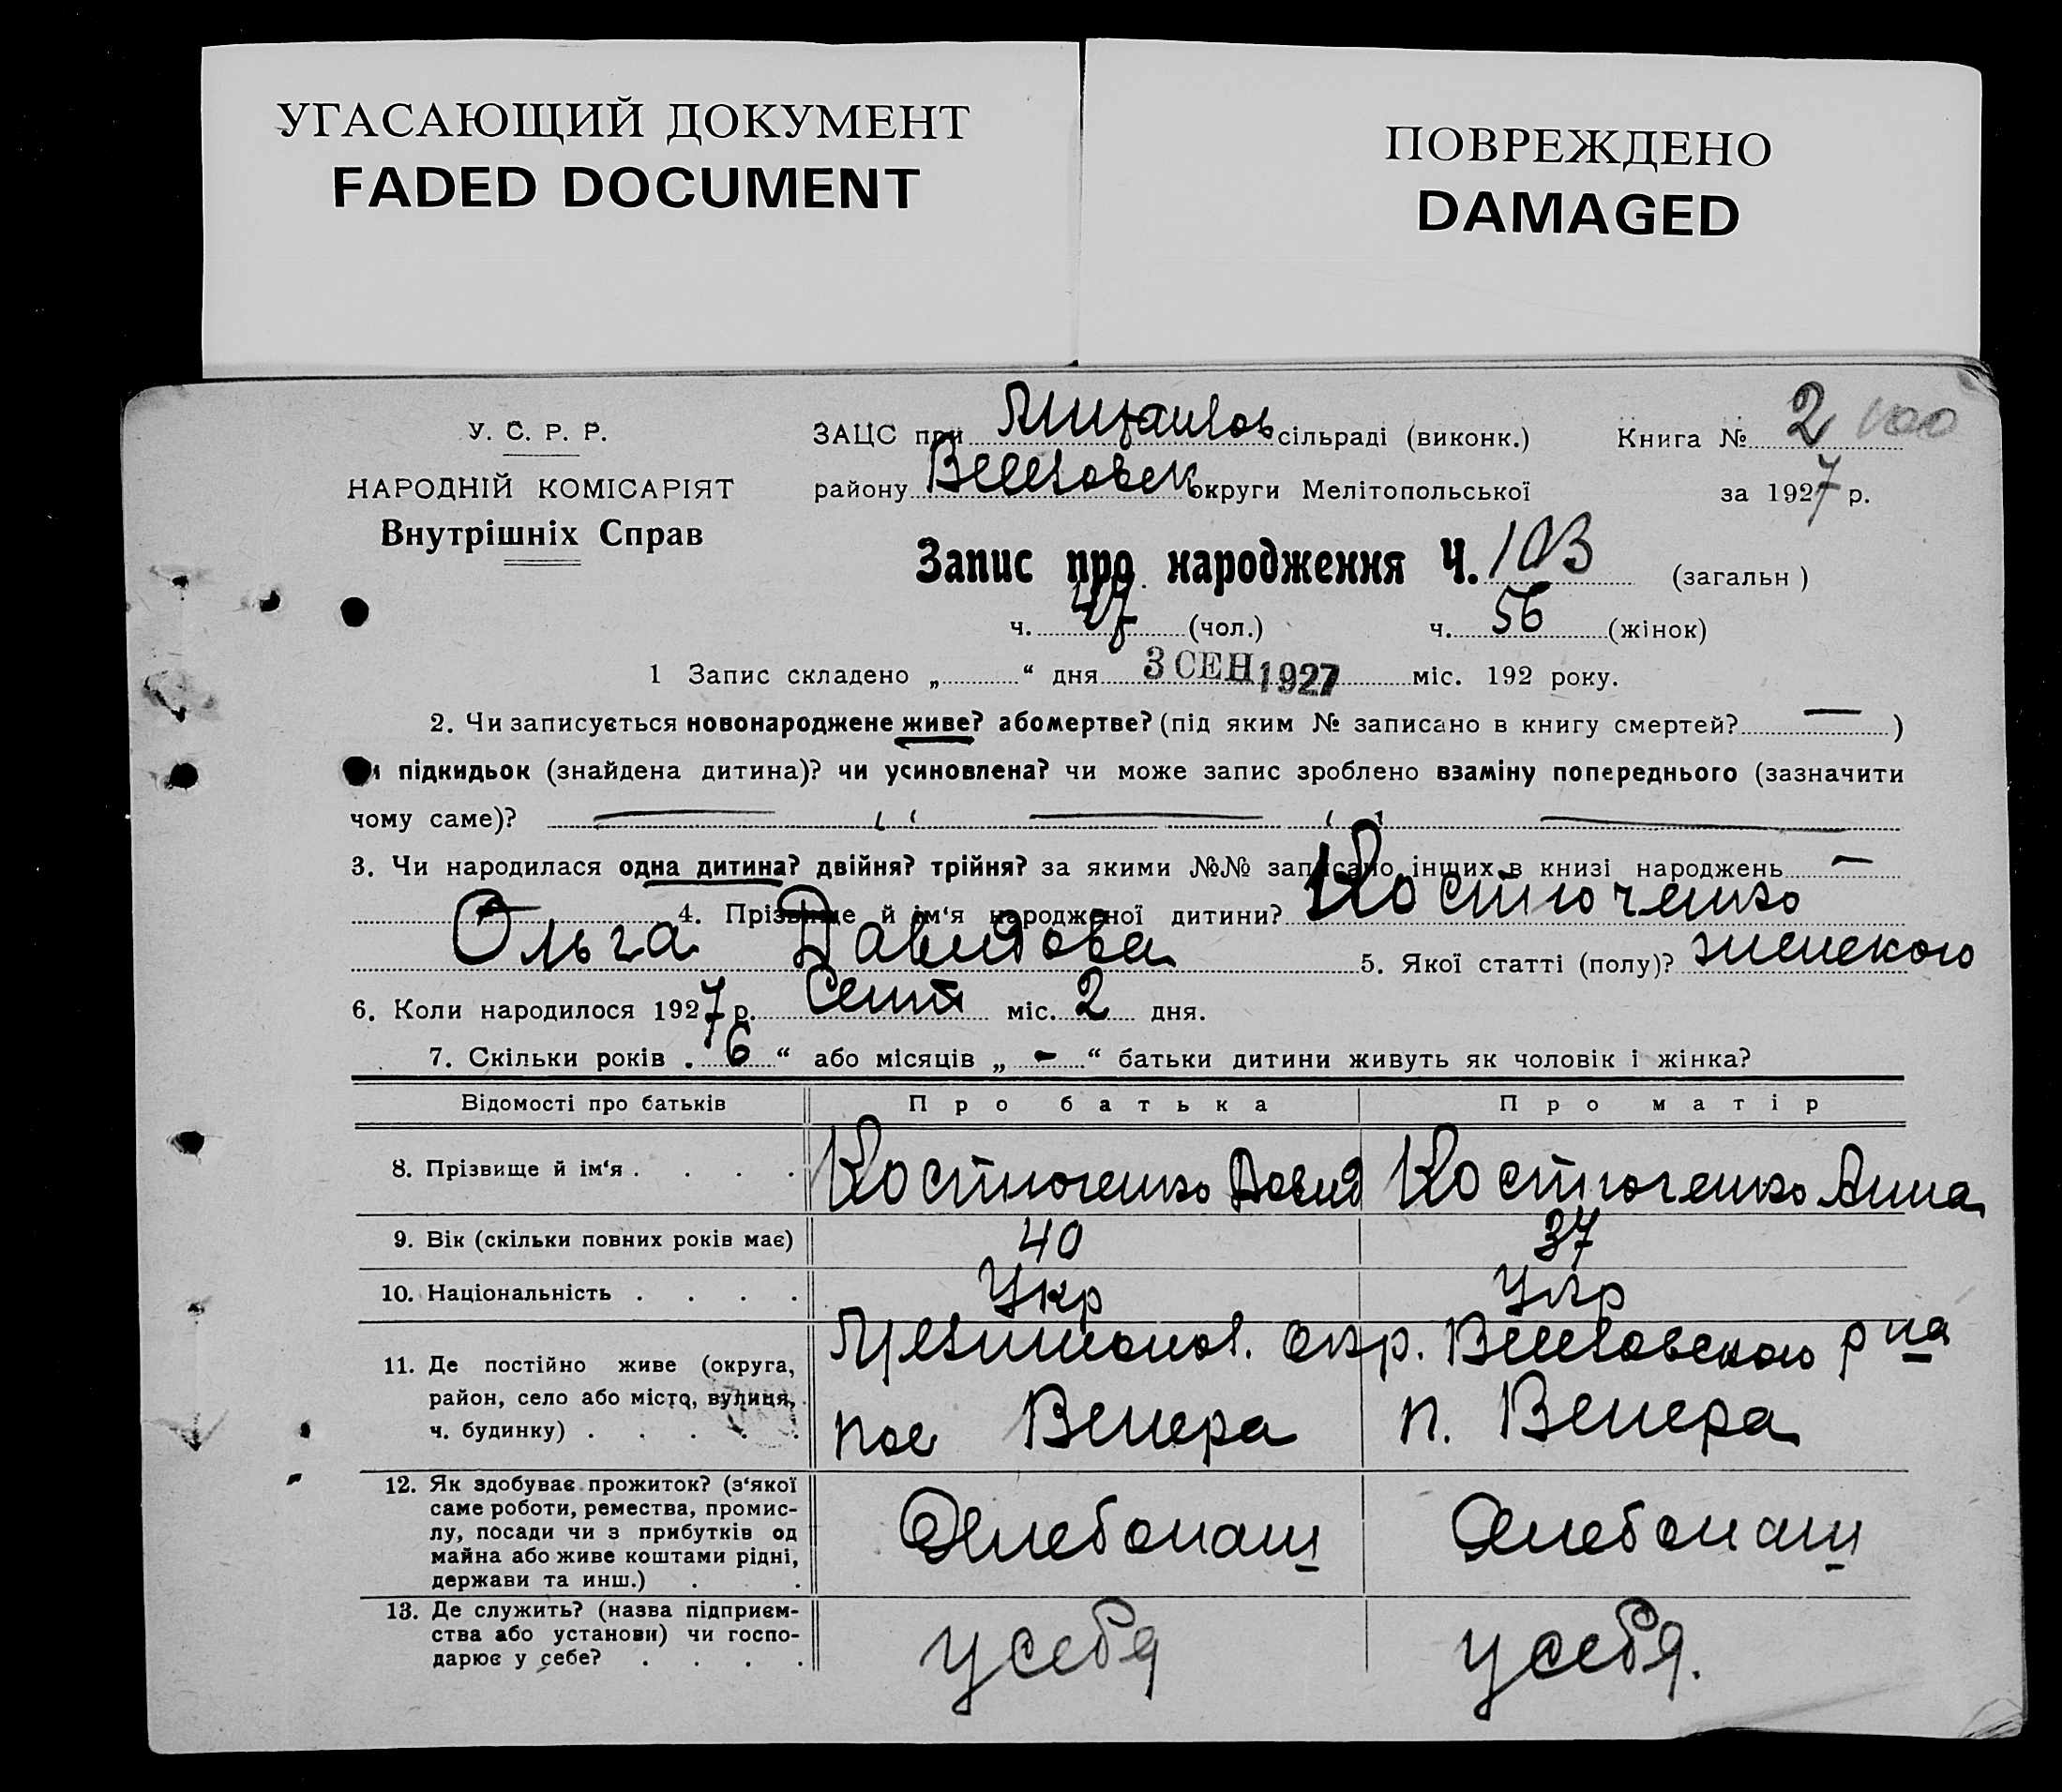 УГАСАЮЩИЙ ДОКУМЕНТ
FADED DOCUMENT
ПОВРЕЖДЕНО
DAMAGED
У. С. Р. Р.
НАРОДНІЙ КОМІСАРІЯТ
Внутрішніх Справ
ЗАЦС при сільраді (виконк.) Книга № 2 100
району округи Мелітопольської за 1927 р.
Запис про народження Ч. 103 (загальн)
ч. 47 (чол.) ч. 56 (жінок)
1 Запис складено „ “ дня 3 СЕН 1927 міс. 192 року.
2. Чи записується новонароджене живе? або мертве? (під яким № записано в книгу смертей? — )
чи підкидьок (знайдена дитина)? чи усиновлена? чи може запис зроблено взаміну попереднього (зазначити
чому саме)? — ‘‘ — ‘‘ —
3. Чи народилася одна дитина? двійня? трійня? за якими №№ записано інших в книзі народжень —
4. Прізвище й ім‘я народженої дитини? Костюченко
Ольга Давидова 5. Якої статті (полу)? женского
6. Коли народилося 1927 р. Сент міс. 2 дня.
7. Скільки років „ 6 “ або місяців „ - “ батьки дитини живуть як чоловік і жінка?
Відомості про батьків Про батька Про матір
8. Прізвище й ім‘я . . . . Костюченко Давид Костюченко Анна
9. Вік (скільки повних років має) 40 37
10. Національність . . . . Укр Укр
11. Де постійно живе (округа, окр. р на
район, село або місто, вулиця,
ч. будинку) . . . . . пос Венера п. Венера
12. Як здобуває прожиток? (з‘якої
саме роботи, ремества, промис-
лу, посади чи з прибутків од Хлебопаш Хлебопаш
майна або живе коштами рідні,
держави та инш.) . .
13. Де служить? (назва підприєм-
ства або установи) чи госпо- у себя у себя.
дарює у себе? . . . .